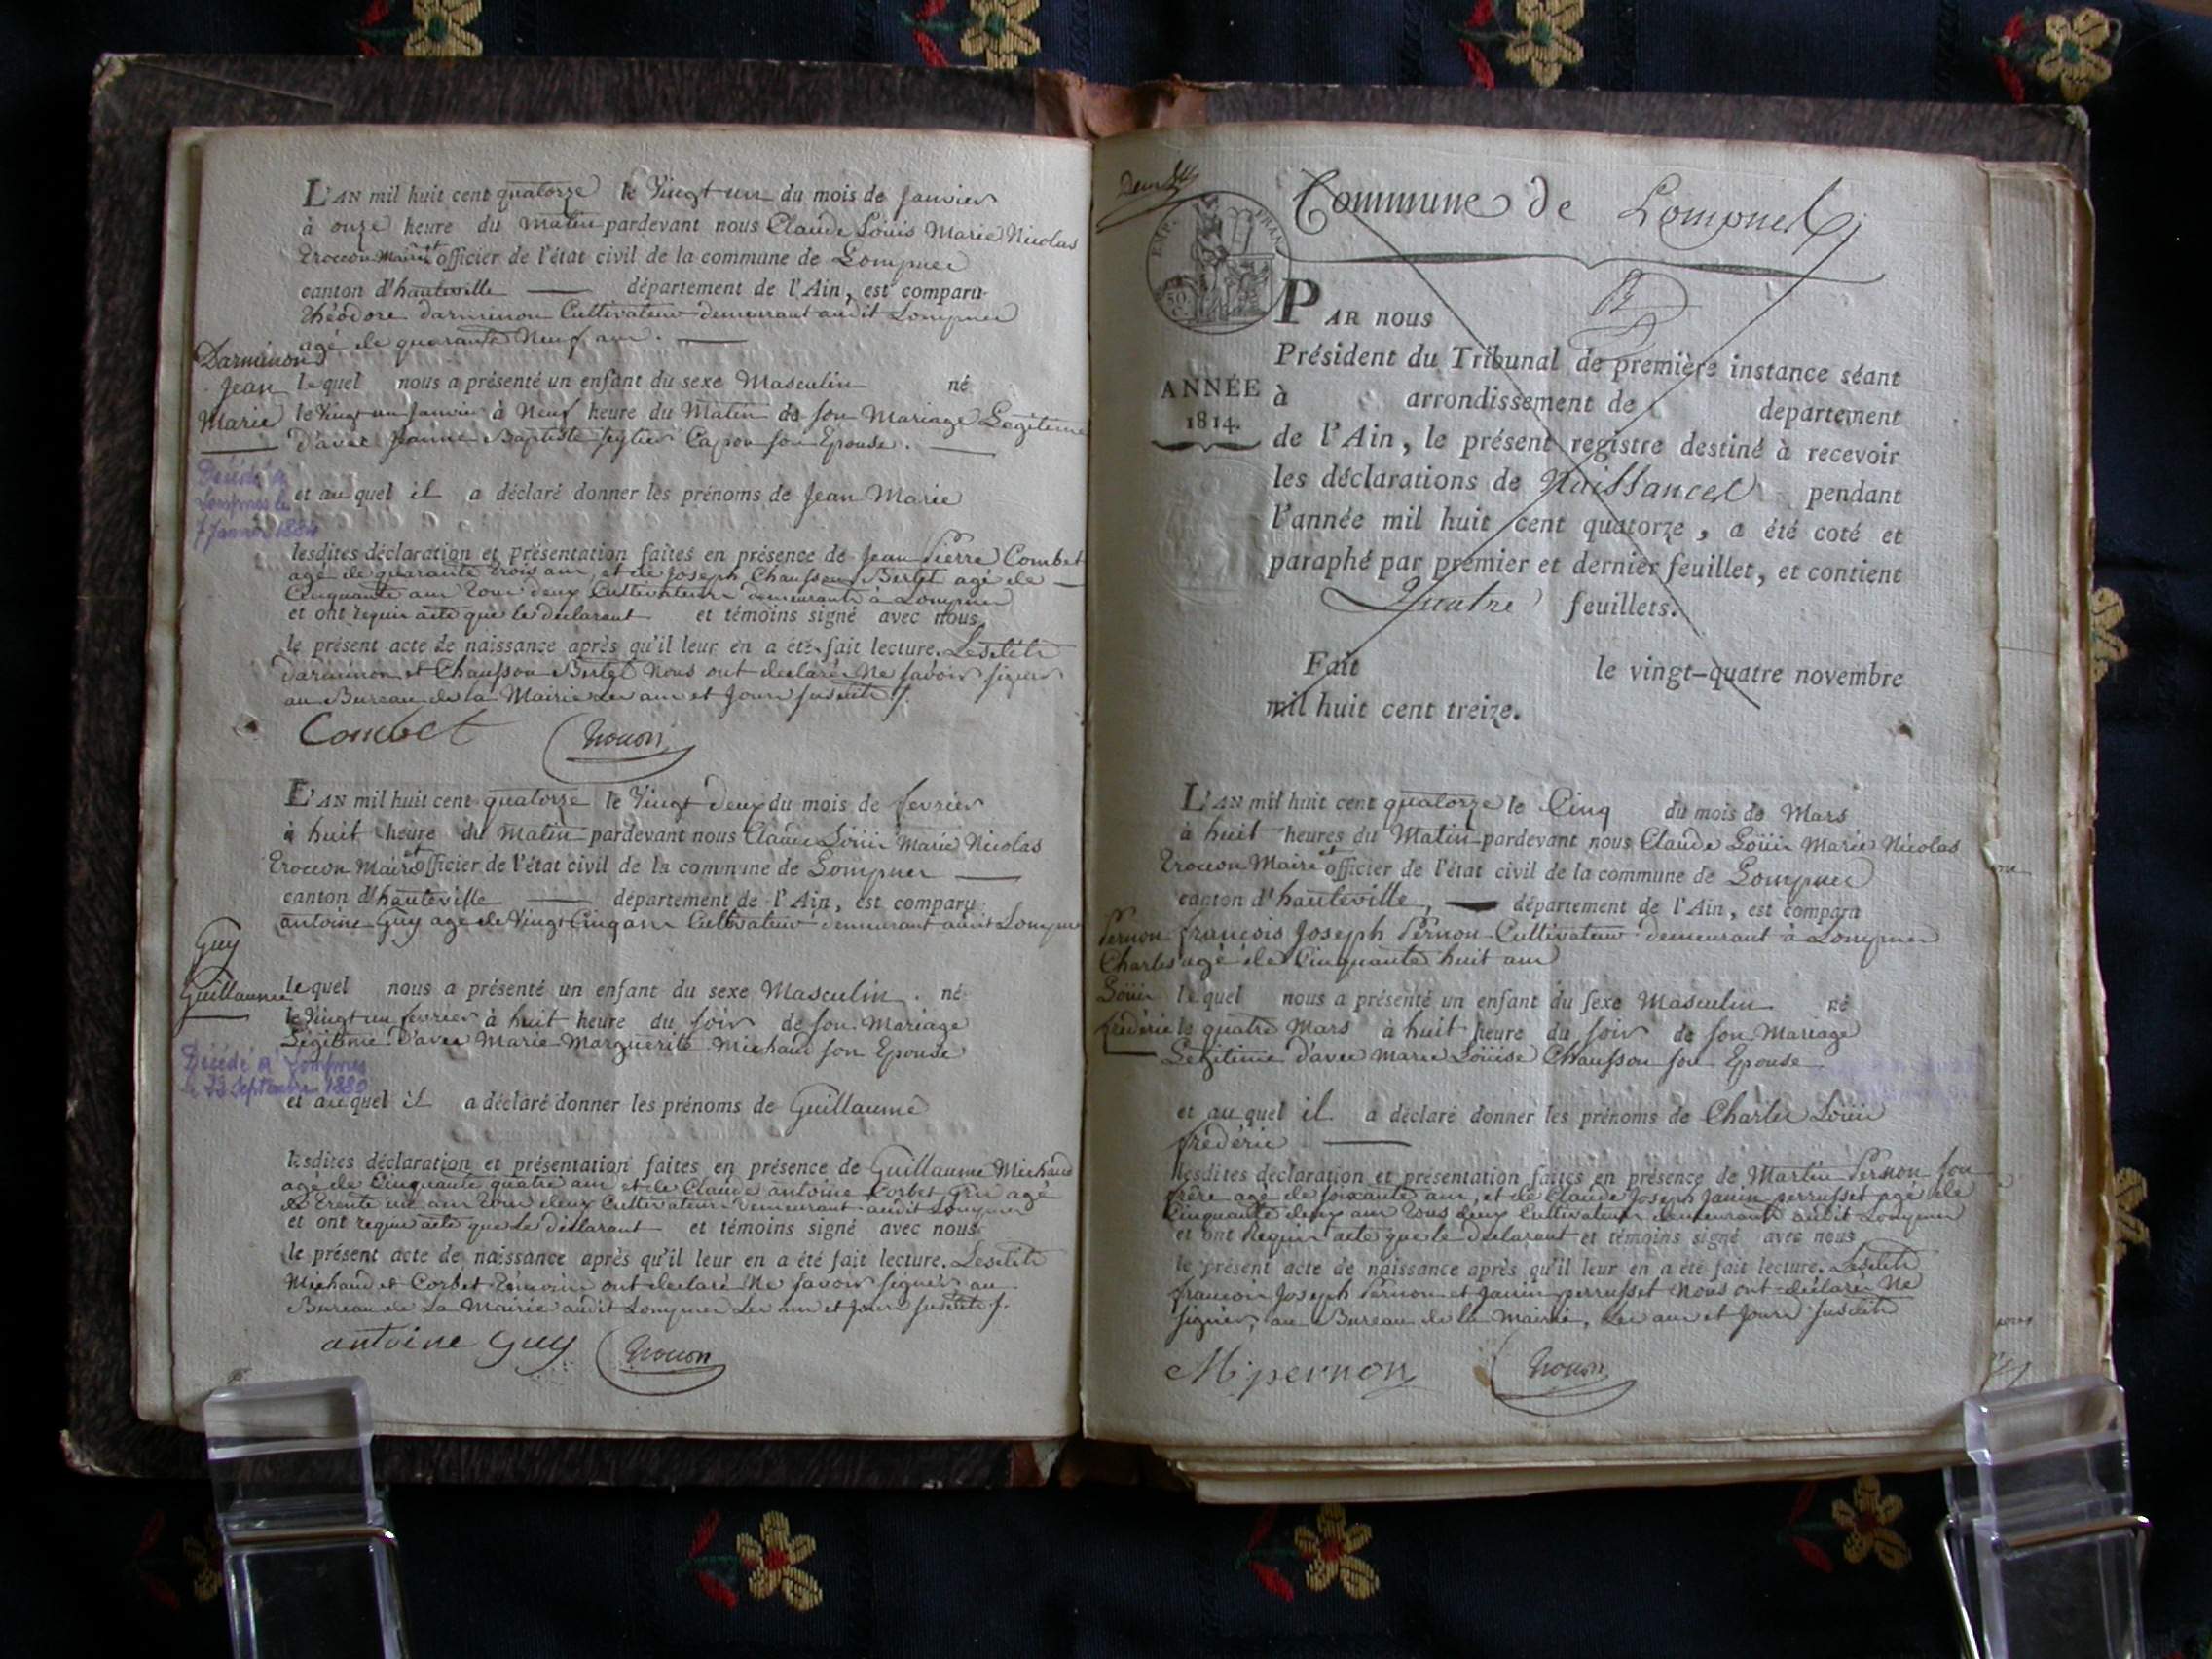 L'AN mil huit cent quatorze le Vingt un du mois de Janvier
à onze heure du matin pardevant nous Claude Loüis Marie Nicolas
Trocon Maire et officier de l'état civil de la commune de Lompnes
canton d'hauteville département de l'Ain, est comparu
théodore darminon Cultivateur demeurant audit Lompnes
agé de quarante Neuf ans.
Darminon
Jean
Marie
lequel nous a présenté un enfant du sexe Masculin né
le Vingt un Janvier à Neuf heure du Matin de son Mariage Légitime
d'avec Jeanne Baptiste Capon son Epouse.
Décédé à
Lompnes le
7 Janvier 1884
et au quel il a déclaré donner les prénoms de Jean Marie
lesdites déclaration et présentation faites en présence de Jean Pierre Combet
agé de quarante trois ans, et de Joseph Chausson Bertet agé de
Cinquante ans tous deux Cultivateurs demeurants à Lompnes
et ont requis acte que le déclarant et témoins signé avec nous
le présent acte de naissance après qu'il leur en a été fait lecture. Lesdits
darminon et Chausson Bertet Nous ont déclarés Ne savoir signer
au Bureau de la Mairie Les an et Jour susdits
Combet Trocon
L'AN mil huit cent quatorze le Vingt deux du mois de fevrier
à huit heure du Matin pardevant nous Claude Loüis Marie Nicolas
Trocon Maire et officier de l'état civil de la commune de Lompnes
canton d'hauteville département de l'Ain, est comparu
antoine Guy age de Vingt Cinq ans Cultivateur demeurant audit Lompnes
Guy
Guillaume
lequel nous a présenté un enfant du sexe Masculin né
le Vingt un fevrier à huit heure du soir de son Mariage
Légitime d'avec Marie Marguerite Michaud son Epouse
Décédé à Lompnes
le 23 Septembre 1880
et au quel il a déclaré donner les prénoms de Guillaume
lesdites déclaration et présentation faites en présence de Guillaume Michaud
age de Cinquante quatre ans et de Claude antoine Corbet agé
de Trente ans tous deux Cultivateurs demeurant audit Lompnes
et ont requis acte que Le déclarant et témoins signé avec nous
le présent acte de naissance après qu'il leur en a été fait lecture. Lesdits
Michaud et Corbet témoins ont declaré Ne savoir signer au
Bureau de La Mairie audit Lompnes Les an et Jour susdits
antoine Guy Trocon
Commune de Lompnes
EMP. FRAN.
50 C.
PAR nous
Président du Tribunal de première instance séant
à arrondissement de departement
de l'Ain, le présent registre destiné à recevoir
les déclarations de Naissances pendant
l'année mil huit cent quatorze, a été coté et
paraphé par premier et dernier feuillet, et contient
Quatre feuillets.
ANNÉE
1814.
Fait le vingt-quatre novembre
mil huit cent treize.
L'AN mil huit cent quatorze le Cinq du mois de Mars
à huit heures du Matin pardevant nous Claude Loüis Marie Nicolas
Trocon Maire et officier de l'état civil de la commune de Lompnes
canton d'hauteville, département de l'Ain, est comparu
françois Joseph Pernon Cultivateur demeurant à Lompnes
agé de Cinquante huit ans
Pernon
Charles
Loüis
frédéric
lequel nous a présenté un enfant du sexe Masculin né
le quatre Mars à huit heure du soir de son Mariage
Légitime d'avec Marie Loüise Chausson son Epouse
et au quel il a déclaré donner les prénoms de Charles Loüis
frédéric
lesdites déclaration et présentation faites en présence de Martin Pernon son
frère agé de soixante ans, et de Claude Joseph Janin perrusset agé de
Cinquante deux ans tous deux Cultivateurs demeurants audit Lompnes
et ont Requis acte que le déclarant et témoins signé avec nous
le présent acte de naissance après qu'il leur en a été fait lecture. Lesdits
françois Joseph Pernon et Janin perrusset Nous ont déclarés Ne
signer, au Bureau de la Mairie, Les an et Jour susdits
M. pernon Trocon